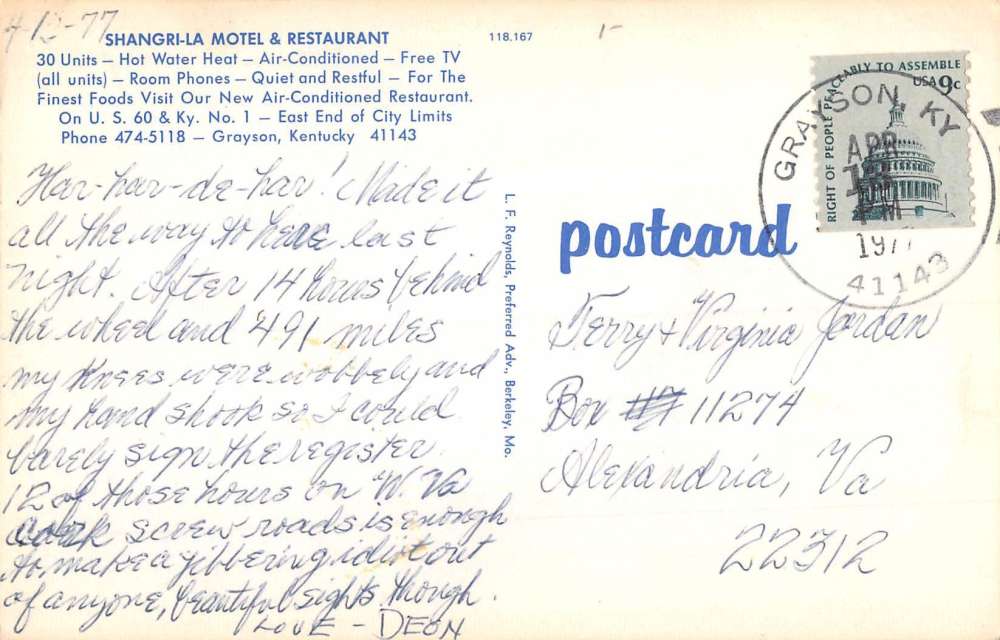 4-13-77
SHANGRI-LA MOTEL & RESTAURANT
30 Units — Hot Water Heat — Air-Conditioned — Free TV
(all units) — Room Phones — Quiet and Restful — For The
Finest Foods Visit Our New Air-Conditioned Restaurant.
On U. S. 60 & Ky. No. 1 — East End of City Limits
Phone 474-5118 — Grayson, Kentucky 41143
118.167
Har-har-de-har! Made it
all the way to here last
night. After 14 hours behind
the wheel and 491 miles
my knees were wobbely and
my hand shook so I could
barely sign the register.
12 of those hours on W. Va
cork screw roads is enough
to make a jibbering idiot out
of anyone, beautiful sights though.
LOVE - DEON
L. F. Reynolds, Preferred Adv., Berkeley, Mo.
postcard
RIGHT OF PEOPLE PEACEABLY TO ASSEMBLE
USA 9c
GRAYSON, KY
APR
PM
1977
41143
Terry + Virginia Jordan
Box # 11274
Alexandria, Va
22312